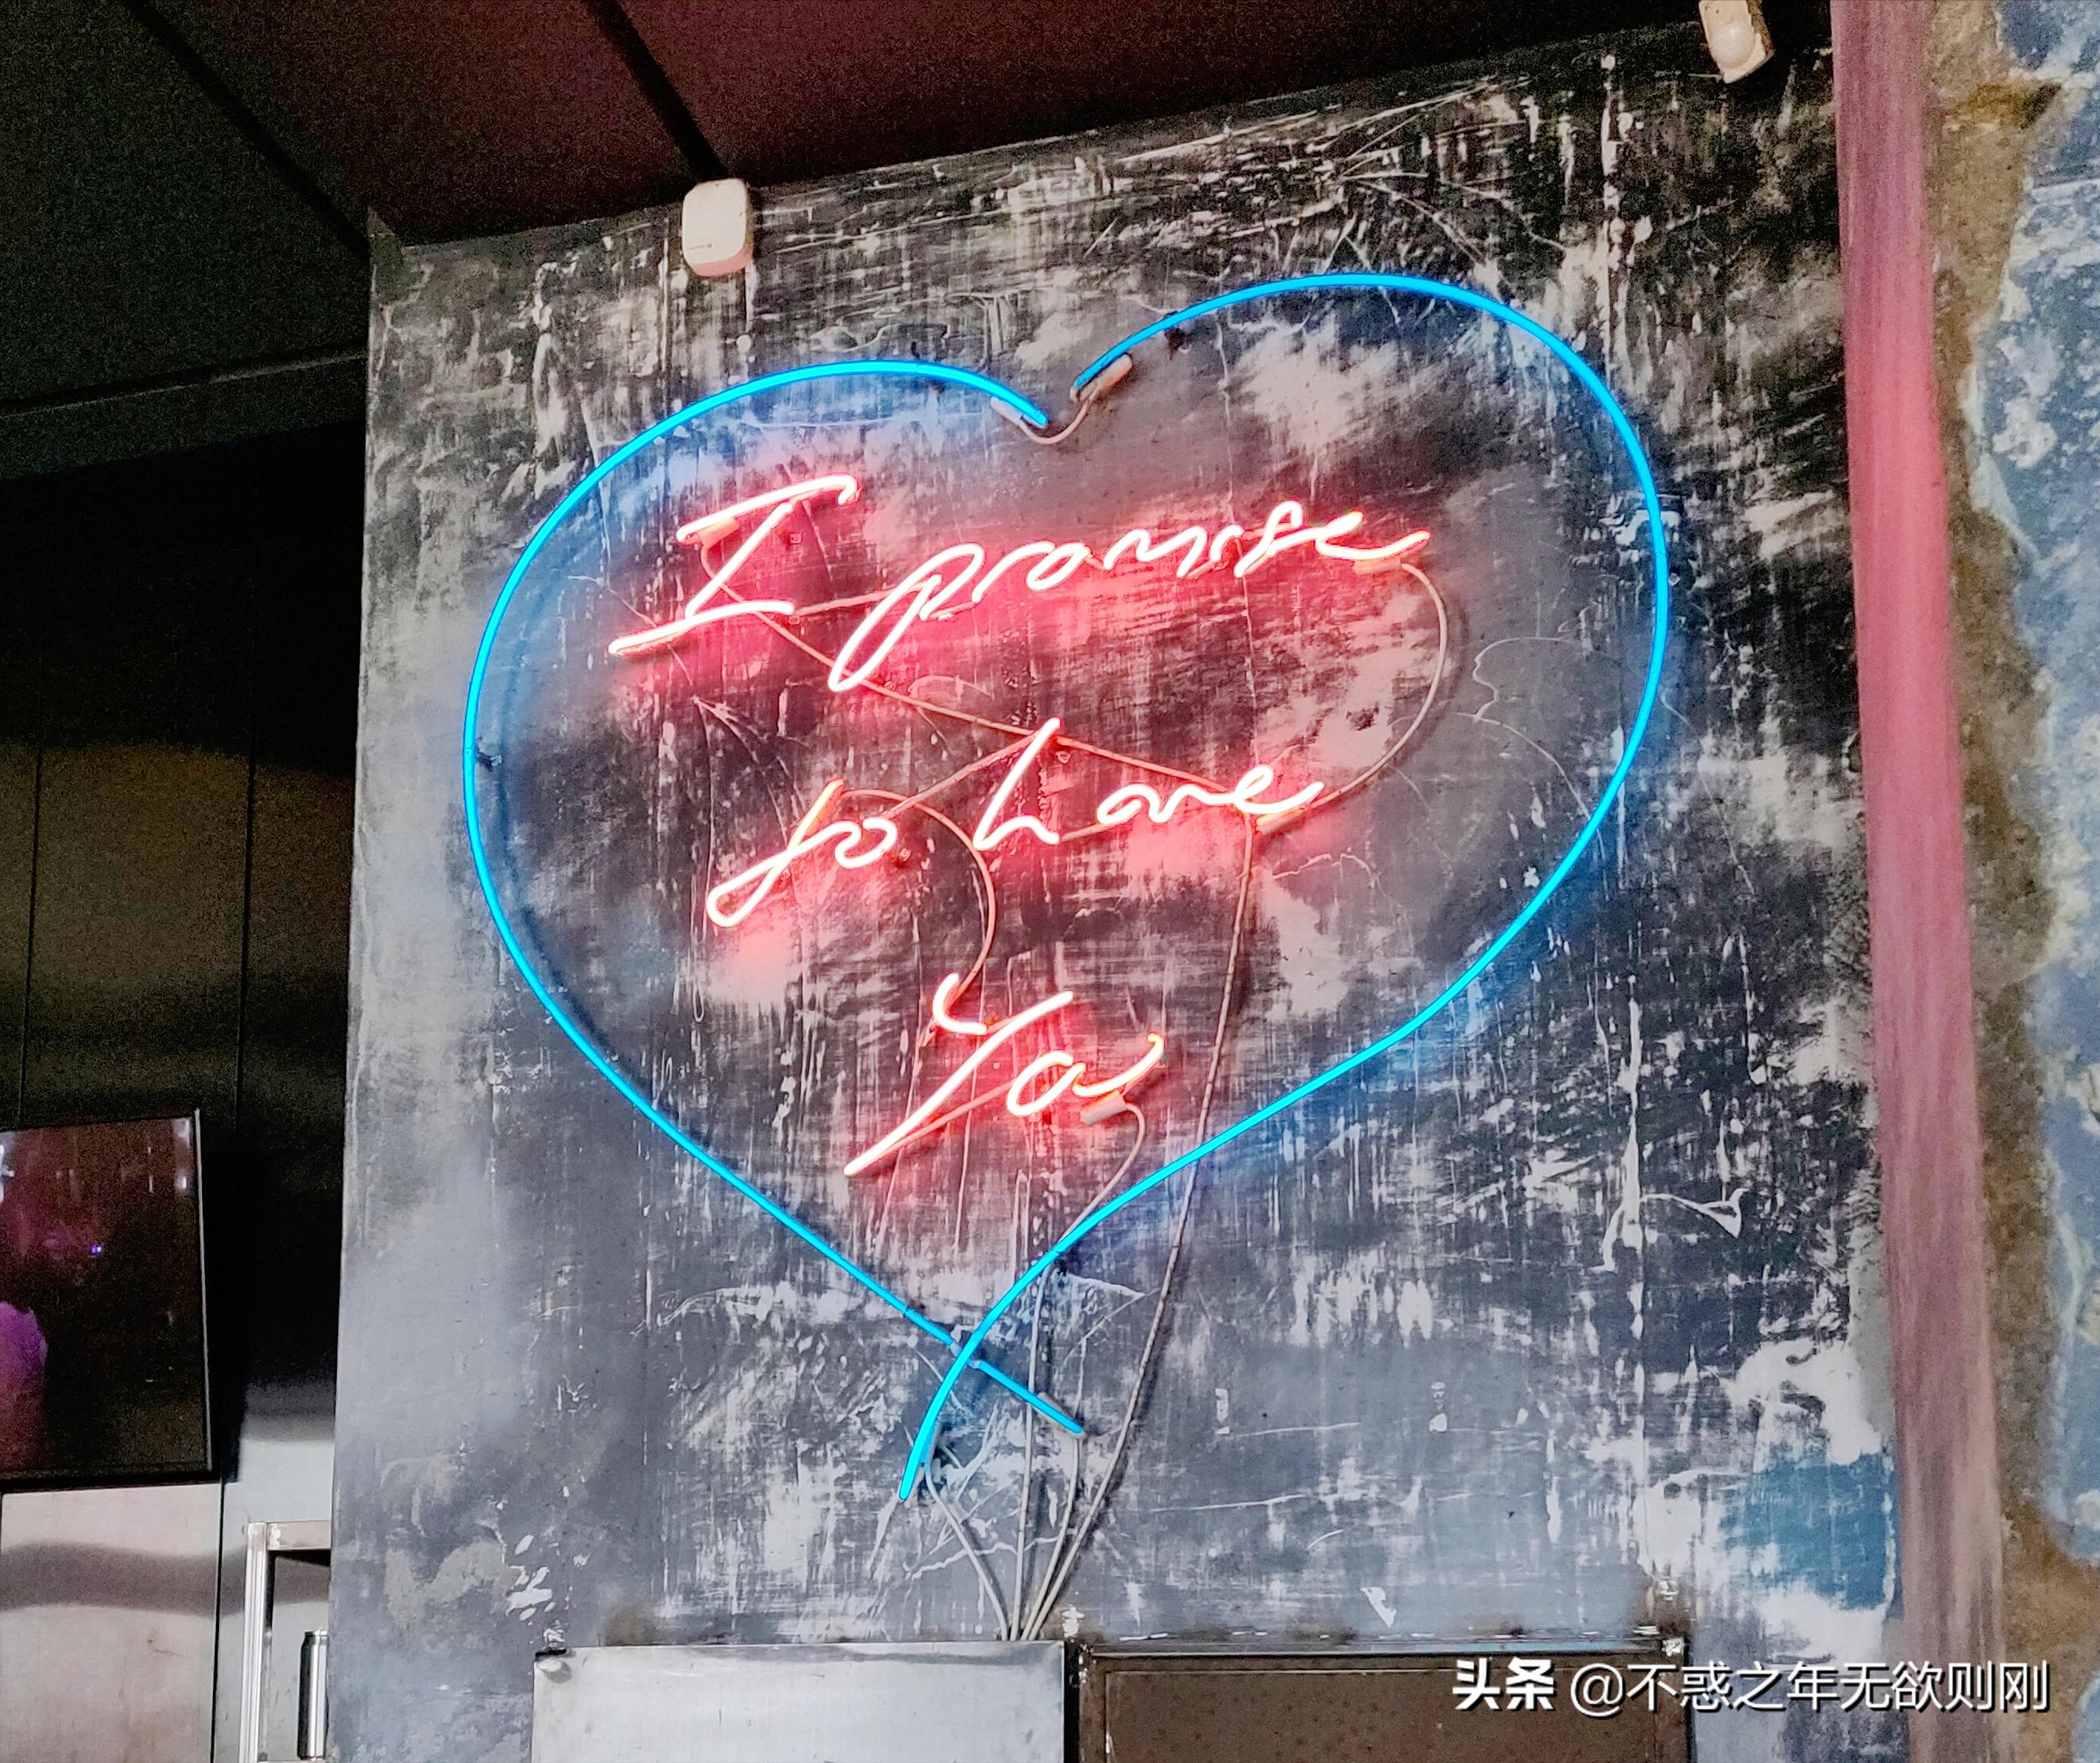 I promise
to Love
You
头条 @不惑之年无欲则刚